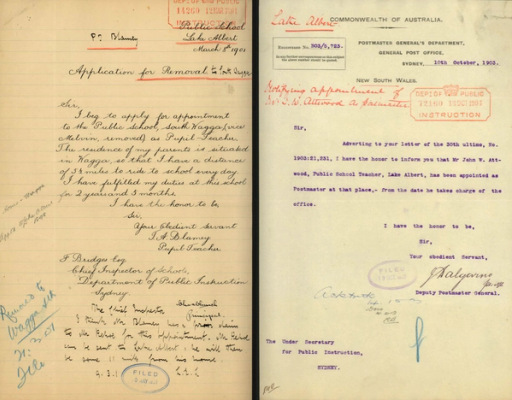 DEPT OF PUBLIC
INSTRUCTION
Public School
Lake Albert
March 8th 1901
Application for Removal to
Sir,
I beg to apply for appointment
to the Public School, South Wagga (vice
Melvin, removed) as Pupil Teacher.
The residence of my parents is situated
in Wagga so that I have a distance
of 3½ miles to ride to school every day.
I have fulfilled my duties at this school
for 2 years and 3 months.
I have the honor to be
Sir,
Your Obedient Servant
J A Blamey
Pupil Teacher
F Bridges Esq
Chief Inspector of Schools,
Department of Public Instruction
Sydney.
The Chief Inspector
I think Mr Blamey has a prior claim
to Mr for this appointment. Mr
can be sent to Lake Albert. he will then
be some 11 miles from his home.
9.3.1
FILED
Wagga
File
Lake Albert
COMMONWEALTH OF AUSTRALIA.
POSTMASTER GENERAL'S DEPARTMENT,
GENERAL POST OFFICE,
SYDNEY, 10th October, 1902.
NEW SOUTH WALES.
Notifying appointment of
Mr J. W. Attwood as Postmaster
DEPT OF PUBLIC
INSTRUCTION
Sir,
Adverting to your letter of the 30th ultimo, No.
1902:21,231, I have the honor to inform you that Mr John W. Att-
wood, Public School Teacher, Lake Albert, has been appointed as
Postmaster at that place,- from the date he takes charge of the
office.
I have the honor to be,
Sir,
Your obedient Servant,
Deputy Postmaster General.
FILED
The Under Secretary
For Public Instruction,
SYDNEY.